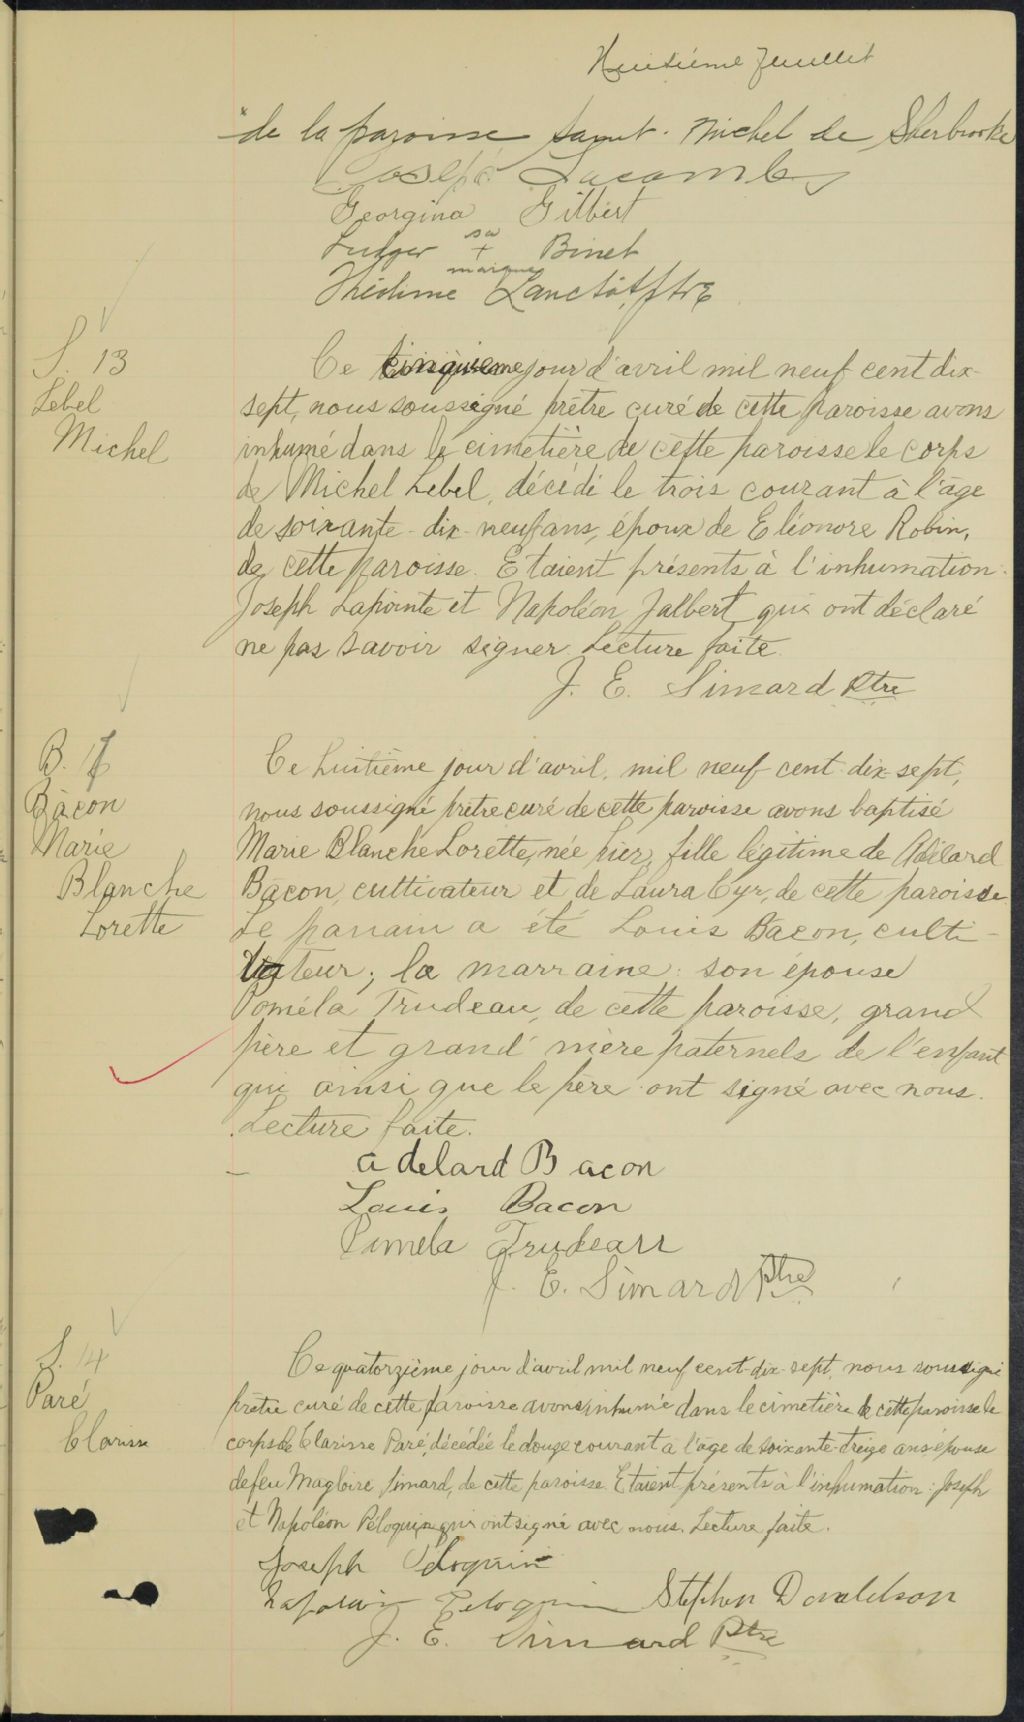 Huitième feuillet
de la paroisse Saint-Michel de Sherbrooke
Joseph Lacombe
Georgina Gilbert
Ludger sa + marque Binet
Théotime Lanctôt, ptre
S. 13
Lebel
Michel
Ce cinquième jour d'avril mil neuf cent dix-
sept, nous soussigné prêtre curé de cette paroisse avons
inhumé dans le cimetière de cette paroisse le corps
de Michel Lebel, décédé le trois courant à l'âge
de soixante-dix-neuf ans, époux de Eléonore Robin,
de cette paroisse. Etaient présents à l'inhumation:
Joseph Lapointe et Napoléon Jalbert qui ont déclaré
ne pas savoir signer. Lecture faite.
J. E. Simard Ptre
B.
Bacon
Marie
Blanche
Lorette
Ce huitième jour d'avril, mil neuf cent dix-sept,
nous soussigné prêtre curé de cette paroisse avons baptisé
Marie Blanche Lorette, née hier, fille légitime de Adélard
Bacon, cultivateur et de Laura Cyr, de cette paroisse.
Le parrain a été Louis Bacon, culti-
vateur; la marraine: son épouse
Poméla Trudeau, de cette paroisse, grand
père et grand'mère paternels de l'enfant
qui ainsi que le père ont signé avec nous.
Lecture faite.
adelard Bacon
Louis Bacon
Pimela Trudeau
J. E. Simard Ptre
S. 14
Paré
Clarisse
Ce quatorzième jour d'avril mil neuf cent-dix-sept, nous soussigné
prêtre curé de cette paroisse avons inhumé dans le cimetière de cette paroisse le
corps de Clarisse Paré, décédée le douze courant à l'âge de soixante-treize ans épouse
de feu Magloire Simard, de cette paroisse. Etaient présents à l'inhumation: Joseph
et Napoléon Péloquin qui ont signé avec nous. Lecture faite.
Joseph Péloquin
Napoléon Peloquin Stephen Donaldson
J. E. Simard Ptre